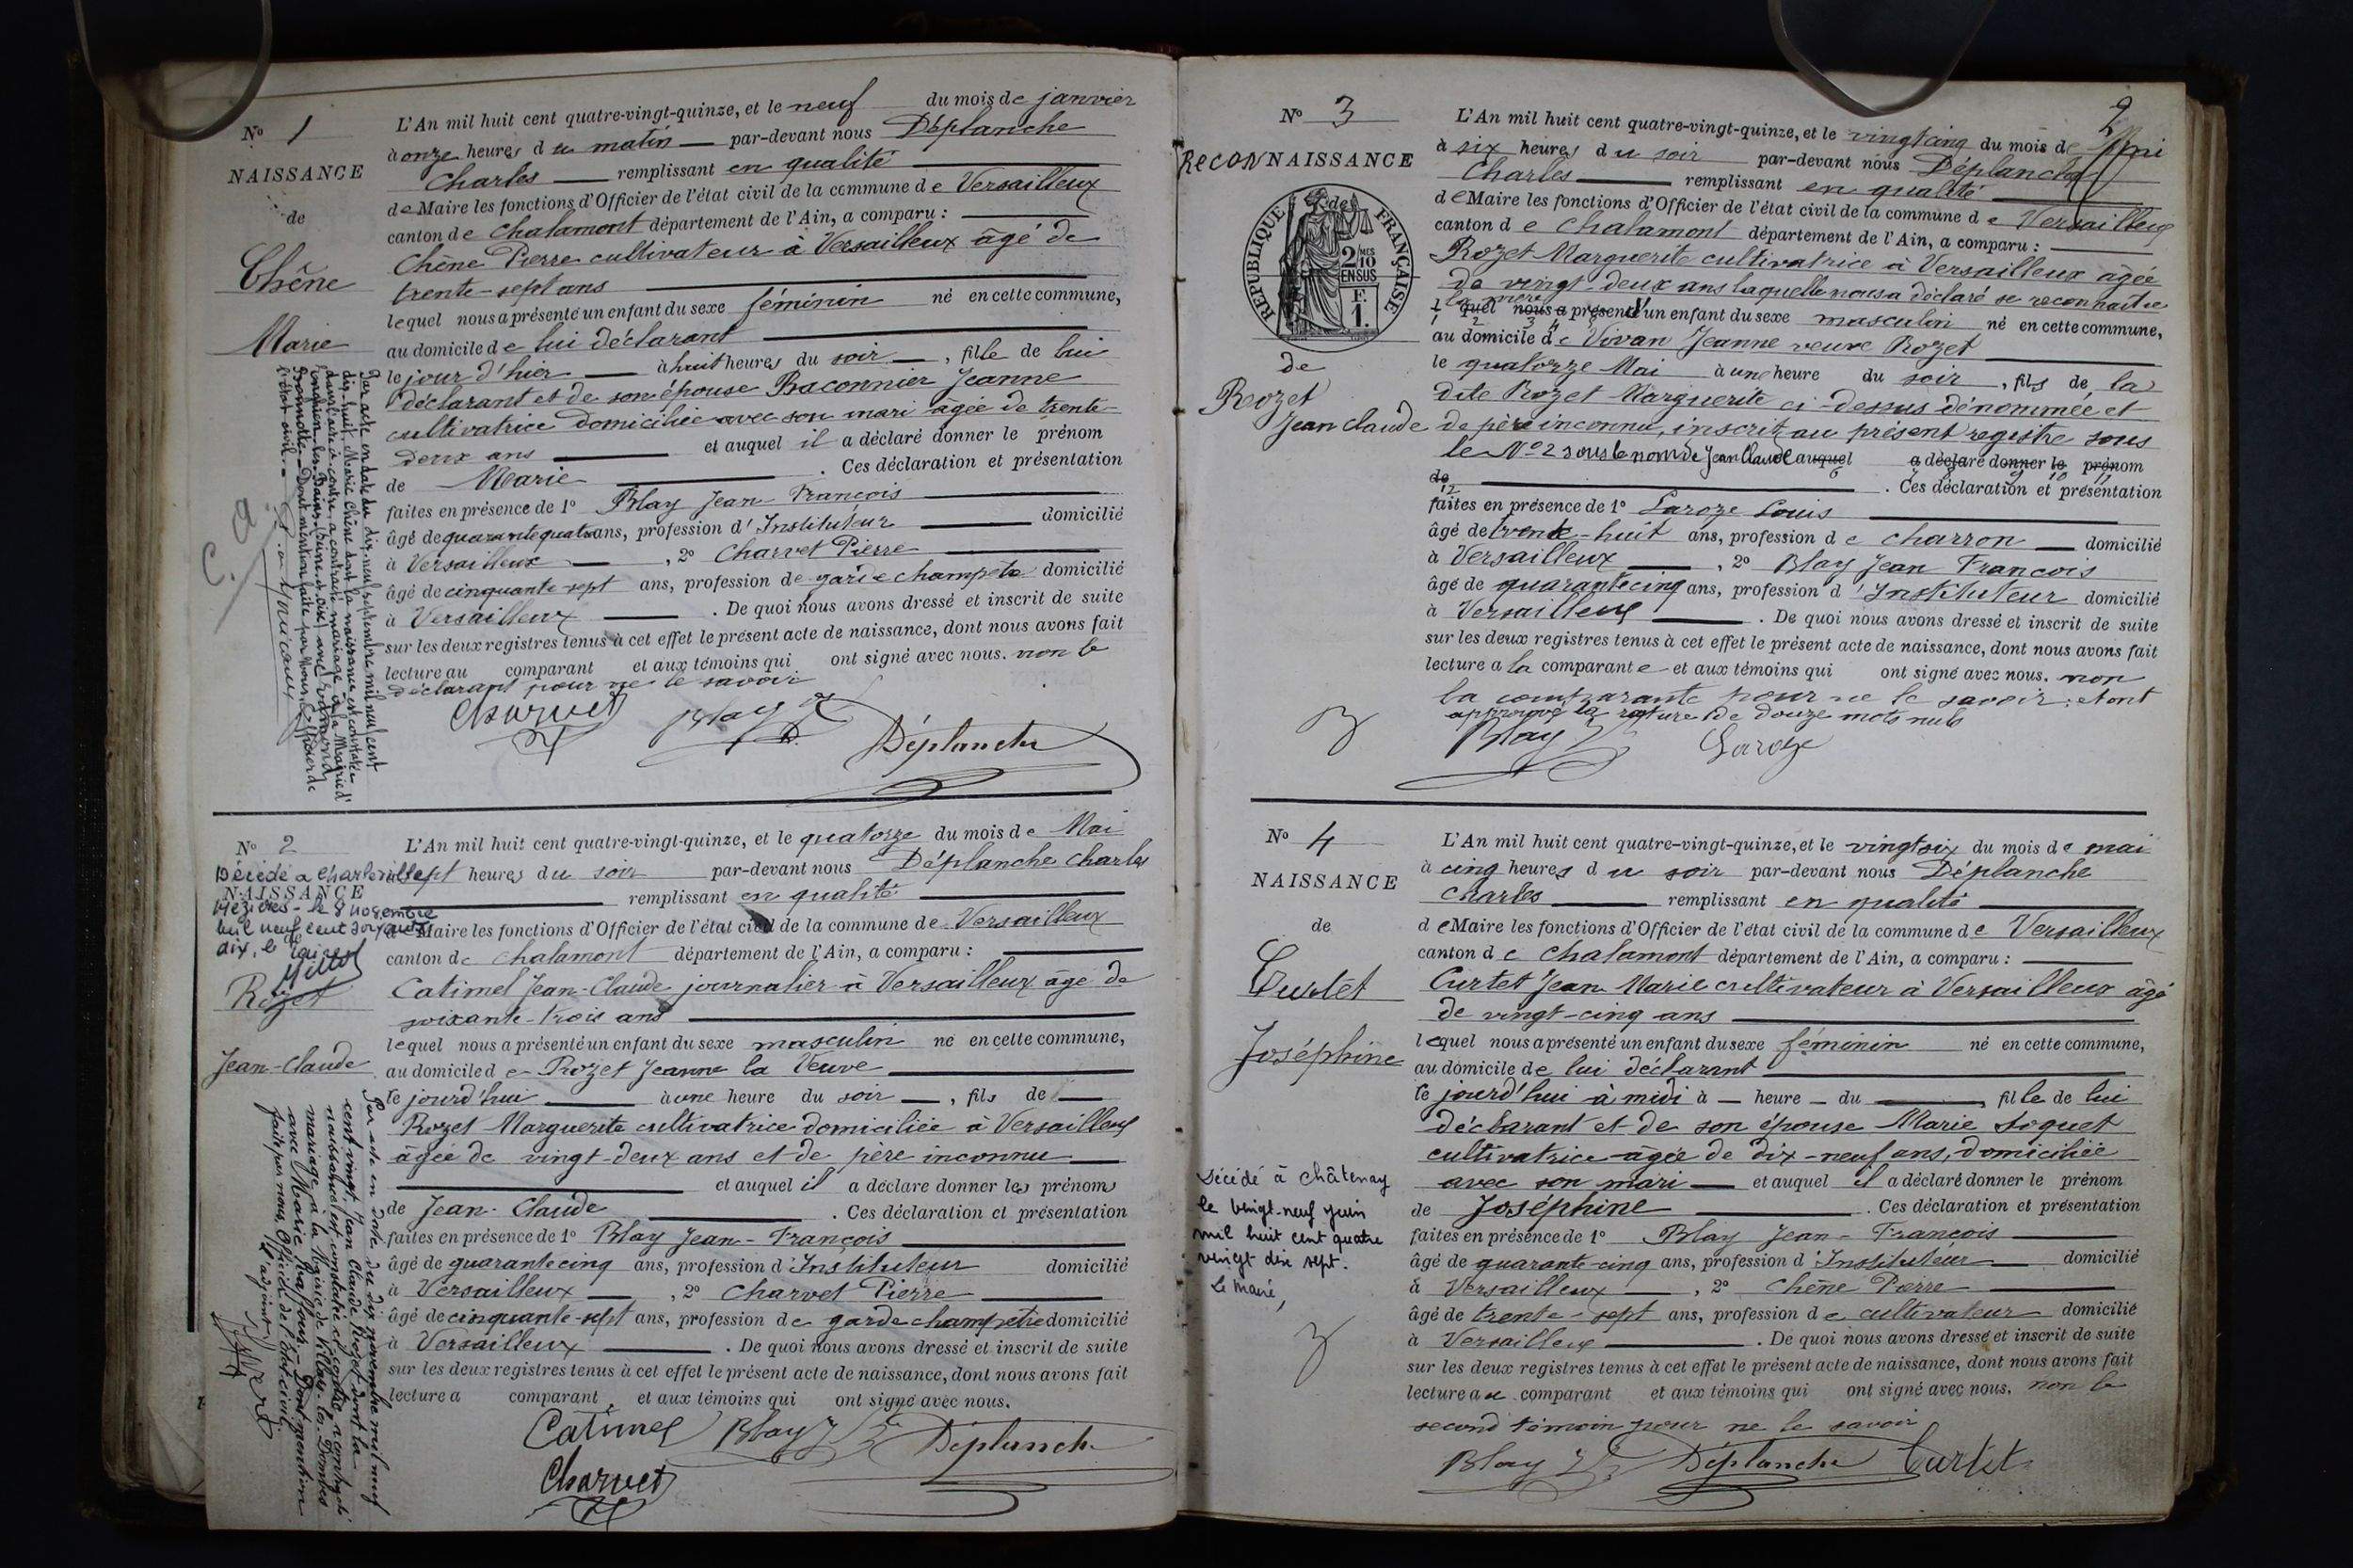 N° 1
NAISSANCE
de
Chêne
Marie
L'An mil huit cent quatre-vingt-quinze, et le neuf du mois de janvier
à onze heures du matin par-devant nous Déplanche
Charles remplissant en qualité
de Maire les fonctions d'Officier de l'état civil de la commune de Versailleux
canton de Chalamont département de l'Ain, a comparu :
Chêne Pierre cultivateur à Versailleux âgé de
trente-sept ans
lequel nous a présenté un enfant du sexe féminin né en cette commune,
au domicile de lui déclarant
le jour d'hier à huit heures du soir, fille de lui
déclarant et de son épouse Baconnier Jeanne
cultivatrice domiciliée avec son mari âgée de trente-
deux ans et auquel il a déclaré donner le prénom
de Marie. Ces déclaration et présentation
faites en présence de 1° Blay Jean-François
âgé de quarante quatre ans, profession d'Instituteur domicilié
à Versailleux, 2° Charvet Pierre
âgé de cinquante-sept ans, profession de garde champêtre domicilié
à Versailleux. De quoi nous avons dressé et inscrit de suite
sur les deux registres tenus à cet effet le présent acte de naissance, dont nous avons fait
lecture au comparant et aux témoins qui ont signé avec nous. non le
déclarant pour ne le savoir
Charvet Blay Déplanche
Par acte en date du dix-neuf septembre mil neuf cent
dix-huit, Marie Chêne dont la naissance est constatée
dans l'acte ci-contre, a contracté mariage à la Mairie d'
Dont mention faite par Nous, Officier de
l'état civil.
N° 2
NAISSANCE
de
Décédé à Charleville
Mézières - le 8 novembre
mil neuf cent soixante
dix, le
Rozet
Jean-Claude
L'An mil huit cent quatre-vingt-quinze, et le quatorze du mois de Mai
à sept heures du soir par-devant nous Déplanche Charles
remplissant en qualité
de Maire les fonctions d'Officier de l'état civil de la commune de Versailleux
canton de Chalamont département de l'Ain, a comparu :
Catimel Jean-Claude journalier à Versailleux âgé de
soixante-trois ans
lequel nous a présenté un enfant du sexe masculin né en cette commune,
au domicile de Rozet Jeanne la Veuve
le jourd'hui à une heure du soir, fils de
Rozet Marguerite cultivatrice domiciliée à Versailleux
âgée de vingt-deux ans et de père inconnu
et auquel il a déclaré donner les prénoms
de Jean-Claude. Ces déclaration et présentation
faites en présence de 1° Blay Jean-François
âgé de quarante cinq ans, profession d'Instituteur domicilié
à Versailleux, 2° Charvet Pierre
âgé de cinquante-sept ans, profession de garde champêtre domicilié
à Versailleux. De quoi nous avons dressé et inscrit de suite
sur les deux registres tenus à cet effet le présent acte de naissance, dont nous avons fait
lecture a comparant, et aux témoins qui ont signé avec nous.
Catimel Blay Déplanche
Charvet
Par acte en date du dix novembre mil neuf
cent vingt, Jean Claude Rozet dont la
naissance est constatée ci-contre, a contracté
mariage à la Mairie de Villars-les-Dombes
avec Marie Dont mention
faite par nous, Officier de l'état civil.
L'adjoint
N° 3
2
RECONNAISSANCE
de
RÉPUBLIQUE FRANÇAISE
2/10 MES
EN SUS
F.
1.
de
Rozet
Jean Claude
L'An mil huit cent quatre-vingt-quinze, et le vingt cinq du mois de Mai
à six heures du soir par-devant nous Déplanche
Charles remplissant en qualité
de Maire les fonctions d'Officier de l'état civil de la commune de Versailleux
canton de Chalamont département de l'Ain, a comparu :
Rozet Marguerite cultivatrice à Versailleux âgée
de vingt-deux ans laquelle nous a déclaré se reconnaître
la mère
lequel nous a présenté d'un enfant du sexe masculin né en cette commune,
1 2 3 4 5
au domicile de Vivan Jeanne veuve Rozet
le quatorze Mai à une heure du soir, fils de la
dite Rozet Marguerite ci-dessus dénommée et
de père inconnu, inscrit au présent registre sous
le N° 2 sous le nom de Jean Claude auquel a déclaré donner le prénom
6 7 8 9 10 11
de. Ces déclaration et présentation
12
faites en présence de 1° Laroze Louis
âgé de trente-huit ans, profession de charron domicilié
à Versailleux, 2° Blay Jean François
âgé de quarante cinq ans, profession d'Instituteur domicilié
à Versailleux. De quoi nous avons dressé et inscrit de suite
sur les deux registres tenus à cet effet le présent acte de naissance, dont nous avons fait
lecture a la comparante et aux témoins qui ont signé avec nous. non
la comparante pour ne le savoir; et ont
approuvé la rature de douze mots nuls
Blay Laroze
N° 4
NAISSANCE
de
Curtet
Joséphine
Décédé à Châtenay
le vingt-neuf juin
mil huit cent quatre
vingt dix sept.
Le Maire,
L'An mil huit cent quatre-vingt-quinze, et le vingt six du mois de mai
à cinq heures du soir par-devant nous Déplanche
Charles remplissant en qualité
de Maire les fonctions d'Officier de l'état civil de la commune de Versailleux
canton de Chalamont département de l'Ain, a comparu :
Curtet Jean Marie cultivateur à Versailleux âgé
de vingt-cinq ans
lequel nous a présenté un enfant du sexe féminin né en cette commune,
au domicile de lui déclarant
le jourd'hui à midi à — heure — du, fille de lui
déclarant et de son épouse Marie Loquet
cultivatrice âgée de dix-neuf ans, domiciliée
avec son mari et auquel il a déclaré donner le prénom
de Joséphine. Ces déclaration et présentation
faites en présence de 1° Blay Jean-François
âgé de quarante-cinq ans, profession d'Instituteur domicilié
à Versailleux, 2° Chêne Pierre
âgé de trente-sept ans, profession de cultivateur domicilié
à Versailleux. De quoi nous avons dressé et inscrit de suite
sur les deux registres tenus à cet effet le présent acte de naissance, dont nous avons fait
lecture au comparant et aux témoins qui ont signé avec nous. non le
second témoin pour ne le savoir
Blay Déplanche Curtet